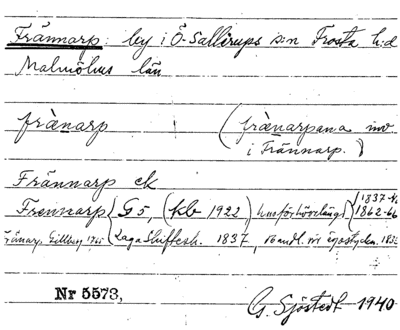 Frännarp: by i Ö. Sallerups s:n Frosta h:d
Malmöhus län
frànarp (frànarpana inv.
i Frännarp.)
Frännarp ek
Frennarp { G5, (kb 1922), husförhörslängd { 1837-
1862-66
Frännarp, Gillberg 1765 Laga Skiftesh. 1837,
Nr 5573,
G. Sjöstedt 1940